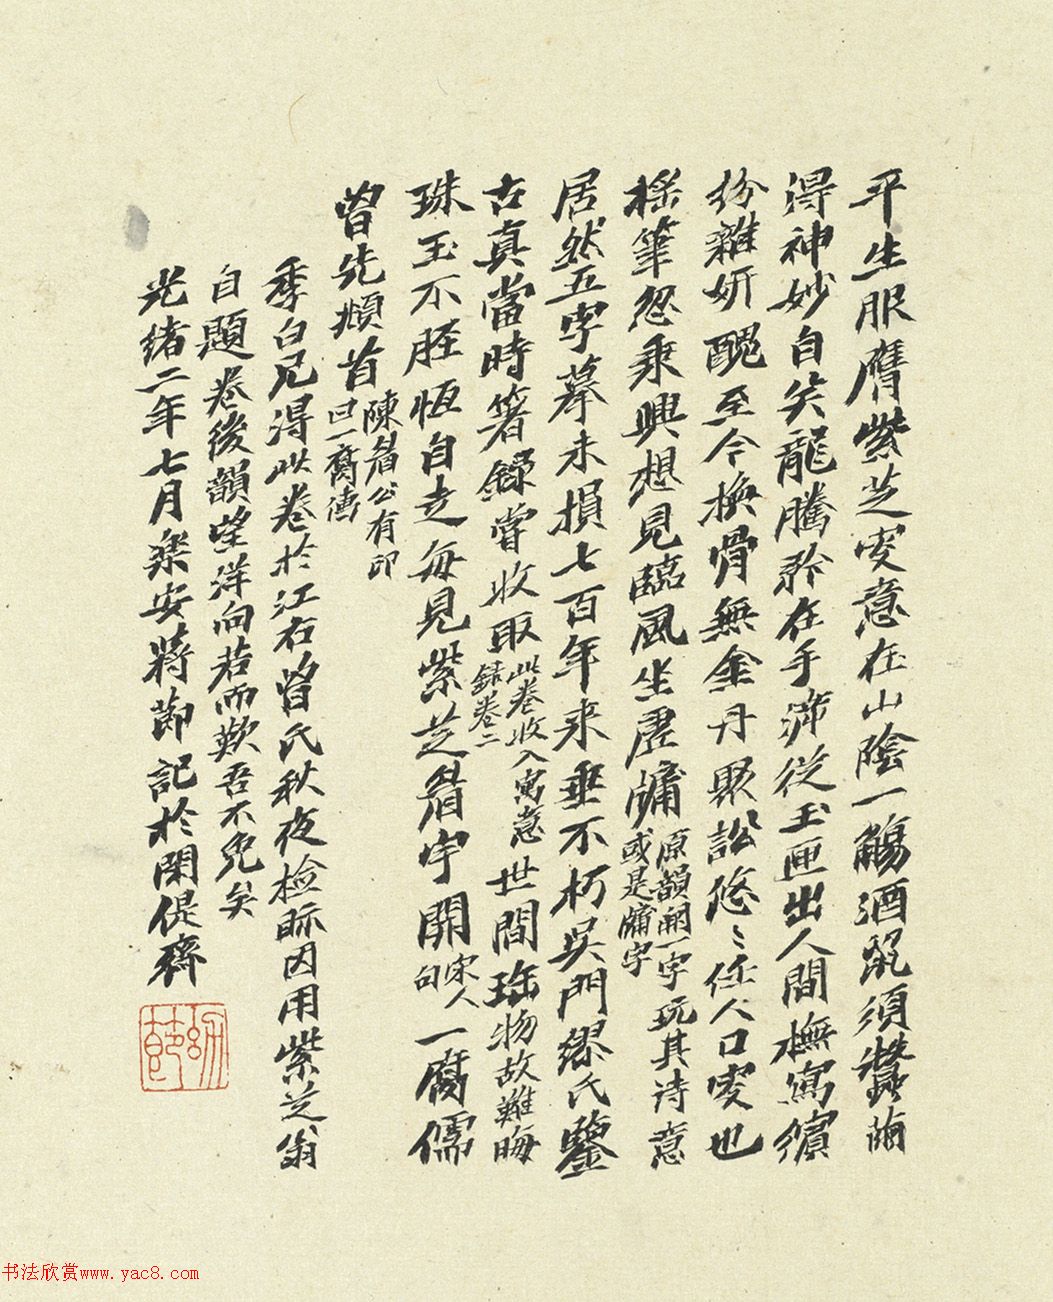 平生服膺紫芝叟意在山陰一觴酒鼠須蠶繭
得神妙自矣龍騰豨在手 從玉匣出人間橅寫
紛離妍醜至今換骨無金丹聚訟悠〻任人口叟也
搖筆忽乘興想見臨風坐虛牖原韻闕一字或是牖字玩其诗意
居然五字摹未損七百年来垂不朽吴門繆氏鑒
古真當時箸錄嘗收取此卷收入寓意錄卷二世間珎物故難晦
珠玉不脛恆自走每見紫芝眉宇開宋人句一腐儒
曾先頫首陳眉公有印曰一腐儒
季白兄得此卷於江右曾氏秋夜檢眎因用紫芝翁
自題卷後韻望洋向若而歎吾不免矣
光緒二年七月樂安蔣節記於閑偍齋
書法欣赏www.yac8.com